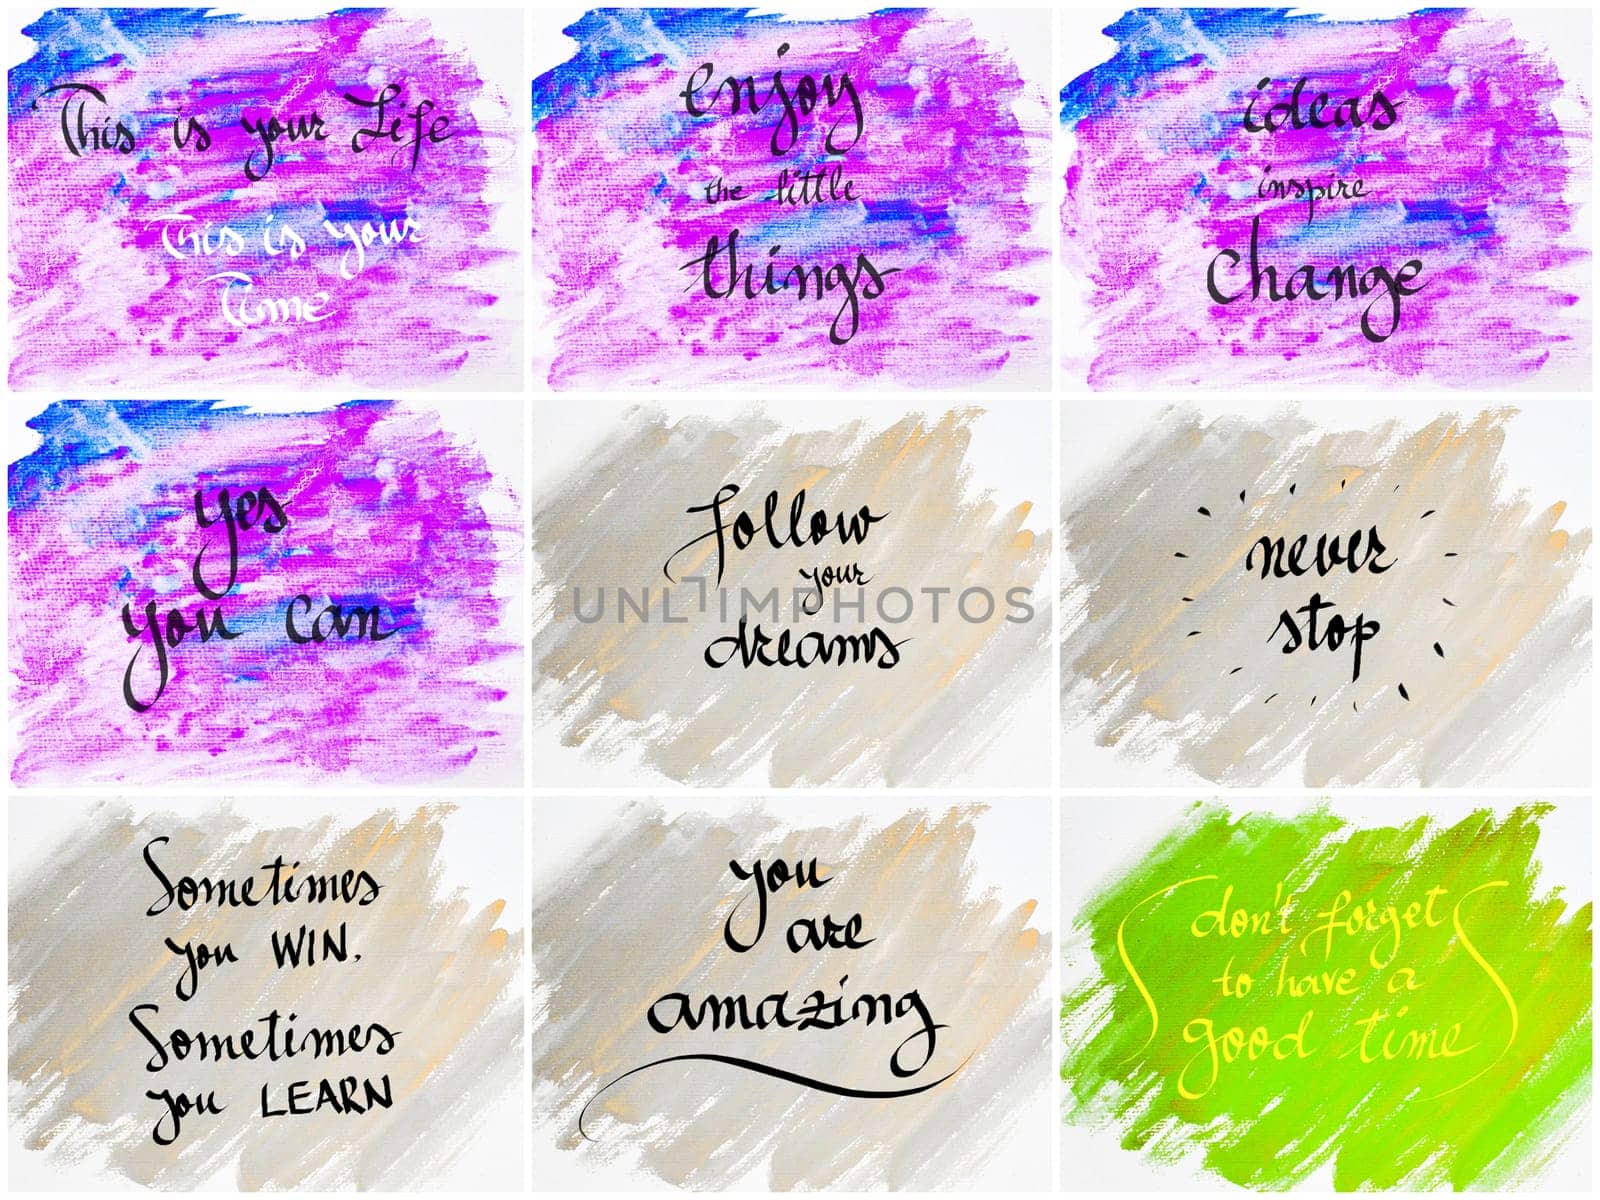 This is your Life
This is your
Time
enjoy
the little
things
ideas
inspire
change
yes
you can
follow
your
dreams
UNLIMPHOTOS
never
stop
Sometimes
you WIN.
Sometimes
you LEARN
you
are
amazing
don't forget
to have a
good time